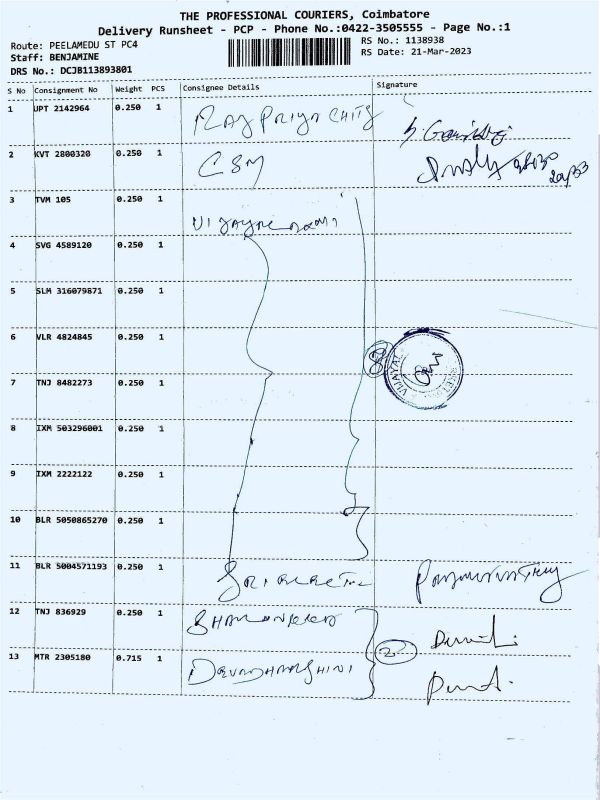 THE PROFESSIONAL COURIERS, Coimbatore
Delivery Runsheet - PCP - Phone No.:0422-3505555 - Page No.:1
Route: PEELAMEDU ST PC4
RS No.: 1138938
Staff: BENJAMINE
RS Date: 21-Mar-2023
DRS No.: DCJB113893801
S No Consignment No Weight PCS Consignee Details Signature
1 UPT 2142964 0.250 1 RAJ PRIYA CHITS
2 KVT 2800320 0.250 1 CSM
3 TVM 105 0.250 1
4 SVG 4589120 0.250 1
5 SLM 316079871 0.250 1
6 VLR 4824845 0.250 1
7 TNJ 8482273 0.250 1
8 IXM 503296001 0.250 1
9 IXM 2222122 0.250 1
10 BLR 5050865270 0.250 1
11 BLR 5004571193 0.250 1
12 TNJ 836929 0.250 1
13 MTR 2305180 0.715 1 DEVADHARSHINI